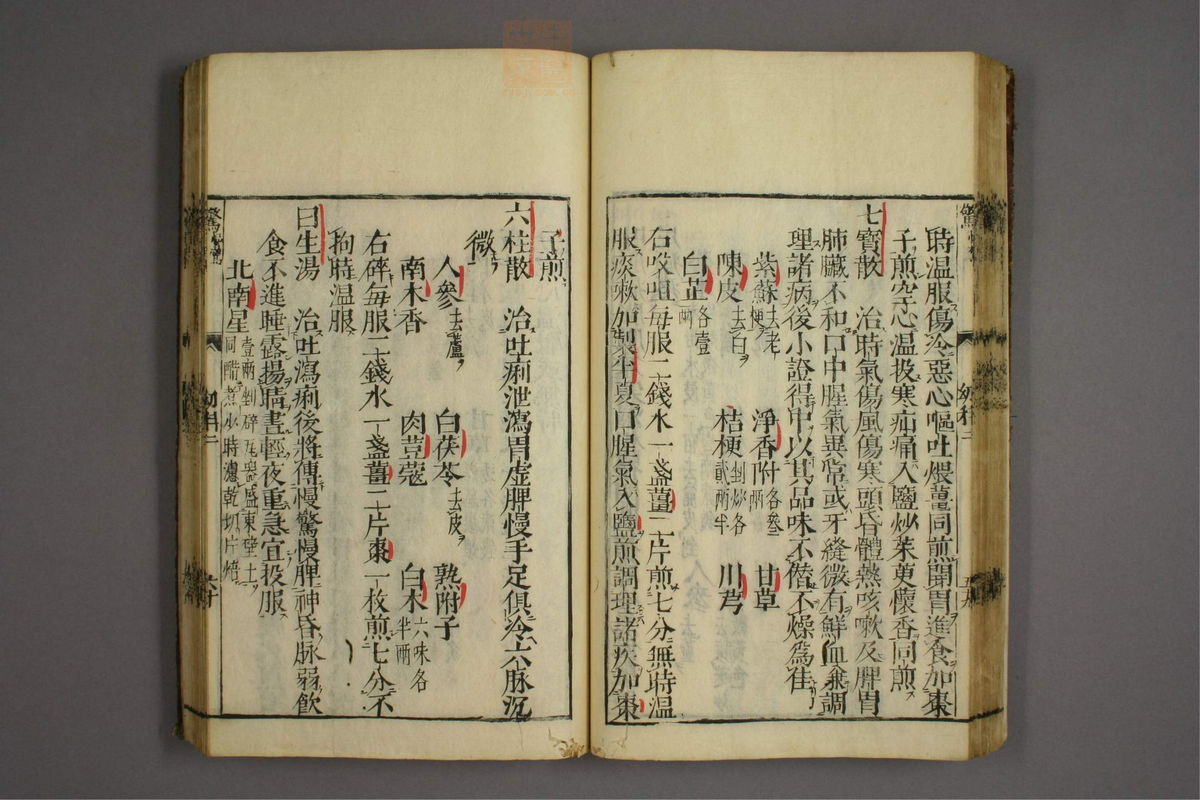 時温服傷冷惡心嘔吐煨薑同煎開胃進食加棗
子煎空心温投寒疝痛入鹽炒茱萸懷香同煎
七寳散 治時氣傷風傷寒頭昏體熱咳嗽及脾胃
肺臟不和口中腥氣異常或牙縫微有鮮血兼調
理諸病後小證得中以其品味不僭不燥爲佳
紫蘇去老梗 淨香附各叁兩 甘草
陳皮去白 桔梗剉炒各貳兩半 川芎
白芷各壹兩
右㕮咀每服二錢水一盞薑二片煎七分無時温
服痰嗽加製半夏口腥氣入鹽煎調理諸疾加棗
幼科二
五九
子煎
六柱散 治吐痢泄瀉胃虚脾慢手足俱冷六脉沉
微
人參去蘆 白茯苓去皮 熟附子
南木香 肉荳蔻 白术六味各半兩
右碎毎服二錢水一盞薑二片棗一枚煎七分不
拘時温服
日生湯 治吐瀉痢後將傳慢驚慢脾神昏脉弱飲
食不進睡露揚睛晝輕夜重急宜投服
北南星壹兩剉碎瓦器盛東壁土同醋煮少時濾乾切片焙
幼科二
六十